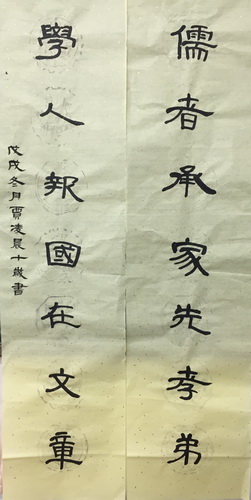 儒者承家先孝弟
學人報國在文章
戊戌冬月賈凌晨十歲書